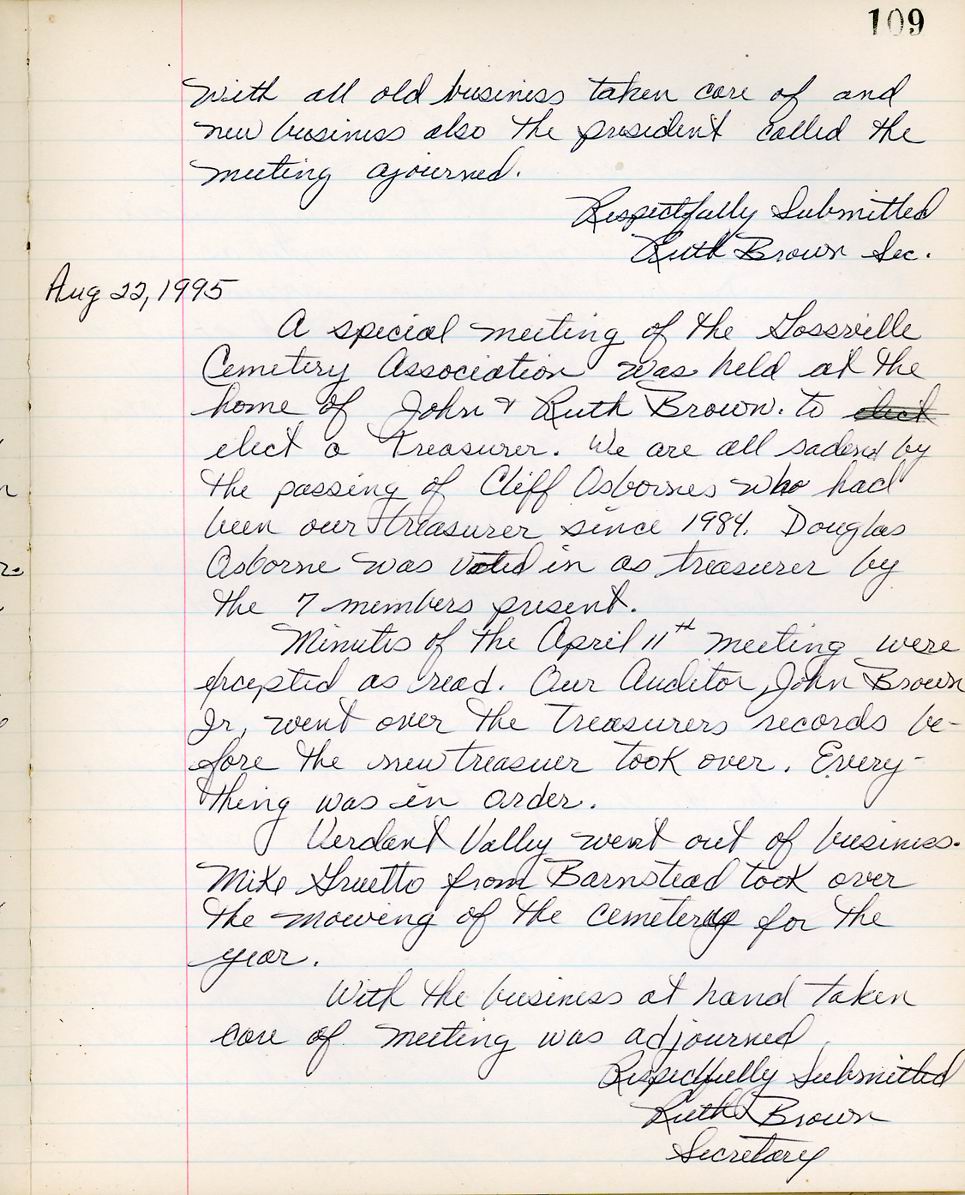 109
With all old business taken care of and
new business also the president called the
meeting ajourned.
Respectfully Submitted
Ruth Brown Sec.
Aug 22, 1995
A special meeting of the Gossville
Cemetery Association was held at the
home of John & Ruth Brown. to elect
elect a Treasurer. We are all sadend by
the passing of Cliff Osbornes who had
been our treasurer since 1984. Douglas
Osborne was voted in as treasurer by
the 7 members present.
Minutes of the April 11th meeting were
excepted as read. Our Auditor, John Brown
Jr, went over the treasurers records be-
fore the new treasuer took over. Every-
thing was in order.
Verdant Valley went out of business.
Mike from Barnstead took over
the mowing of the cemetery for the
year.
With the business at hand taken
care of meeting was adjourned
Respectfully Submitted
Ruth Brown
Secretary